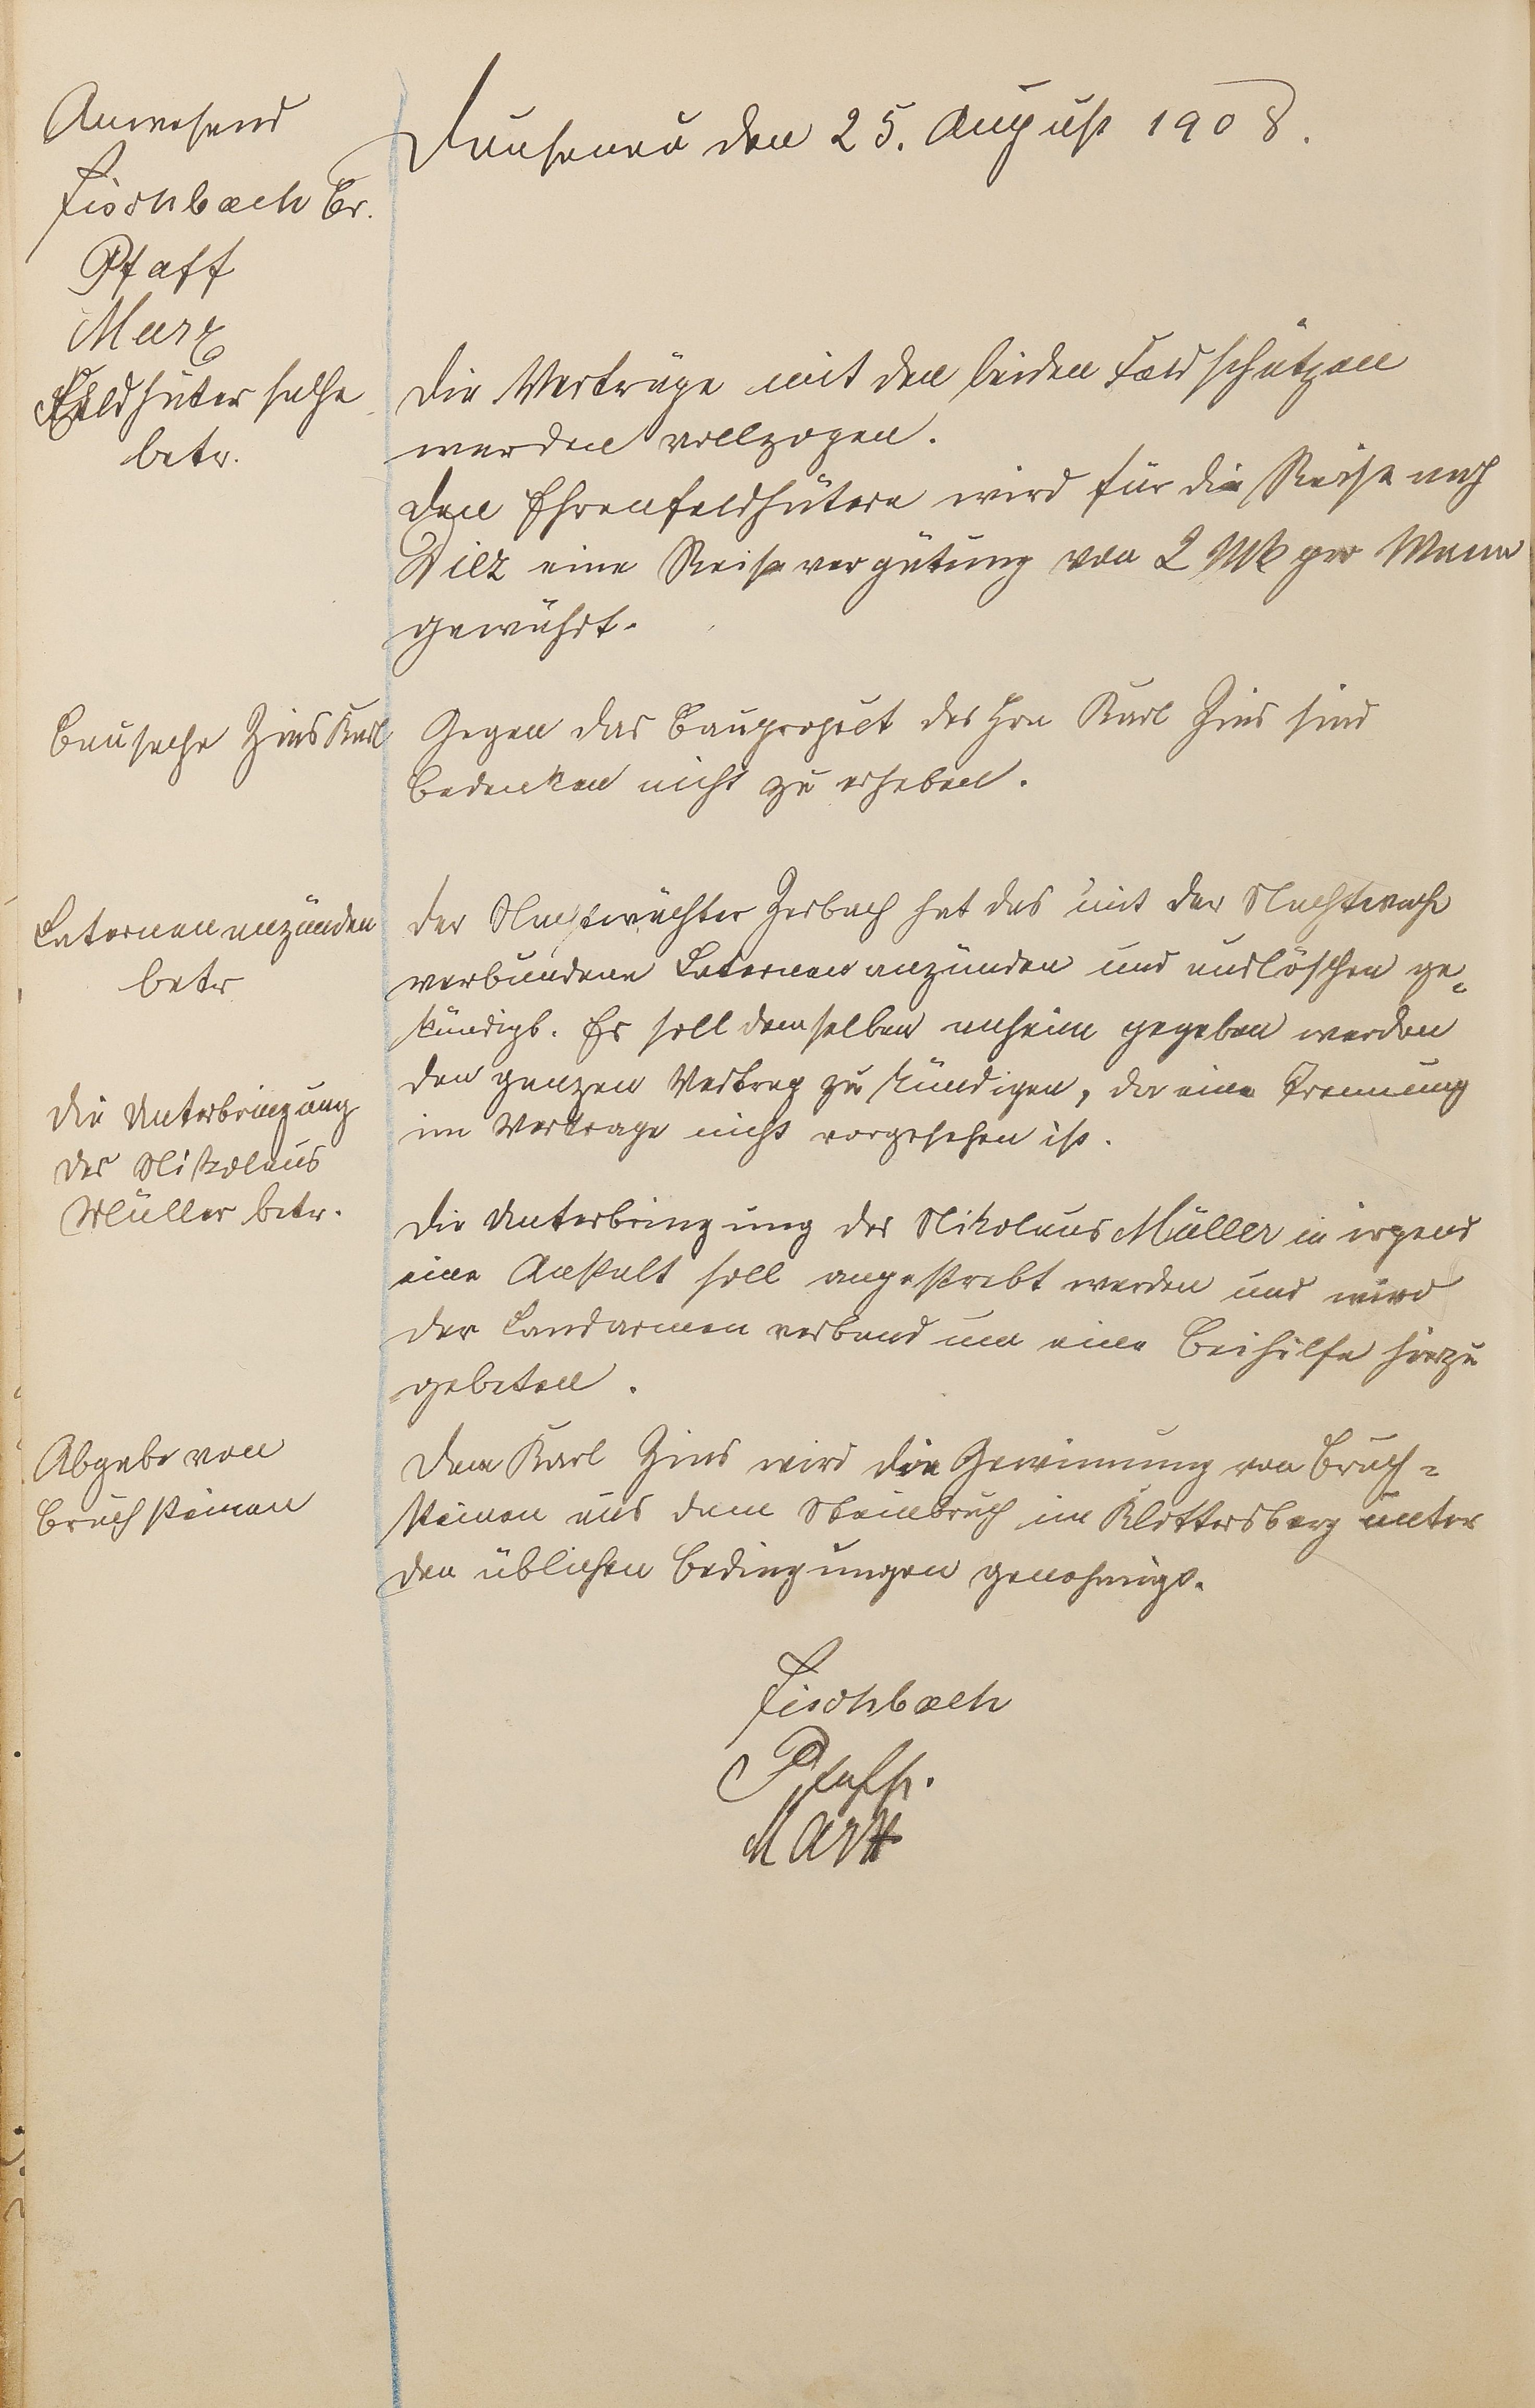 Anwesend
Fischbach Br.
Pfaff
Marx
Dausenau den 25. August 1908.
Feldhüter sache
betr.
Die Verträge mit den beiden Feldschützen
werden vollzogen.
Den Ehrenfeldhütern wird für die Reise nach
Diez eine Reisevergütung von 2 Mk per Mann
gewährt.
Bausache Zins Karl
Gegen das Bauproject des Hrn Karl Zins sind
Bedenken nicht zu erheben.
Laternenanzünden
betr
Der Nachtwächter Zerbach hat das mit der Nachtwache
verbundene Laternenanzünden und auslöschen ge-
kündigt. Es soll demselben anheim gegeben werden
den ganzen Vertrag zu kündigen, da eine Trennung
im Vertrage nicht vorgesehen ist.
Die Unterbringung
des Nikolaus
Müller betr.
Die Unterbringung des Nikolaus Müller in irgend
eine Anstalt soll angestrebt werden und wird
der Landarmenverband um eine Beihilfe hierzu
gebeten.
Abgabe von
Bruchsteinen
Dem Karl Zins wird die Gewinnung von Bruch-
steinen aus dem Steinbruch im Klottersberg unter
den üblichen Bedingungen genehmigt.
Fischbach
Pfaff.
Marx